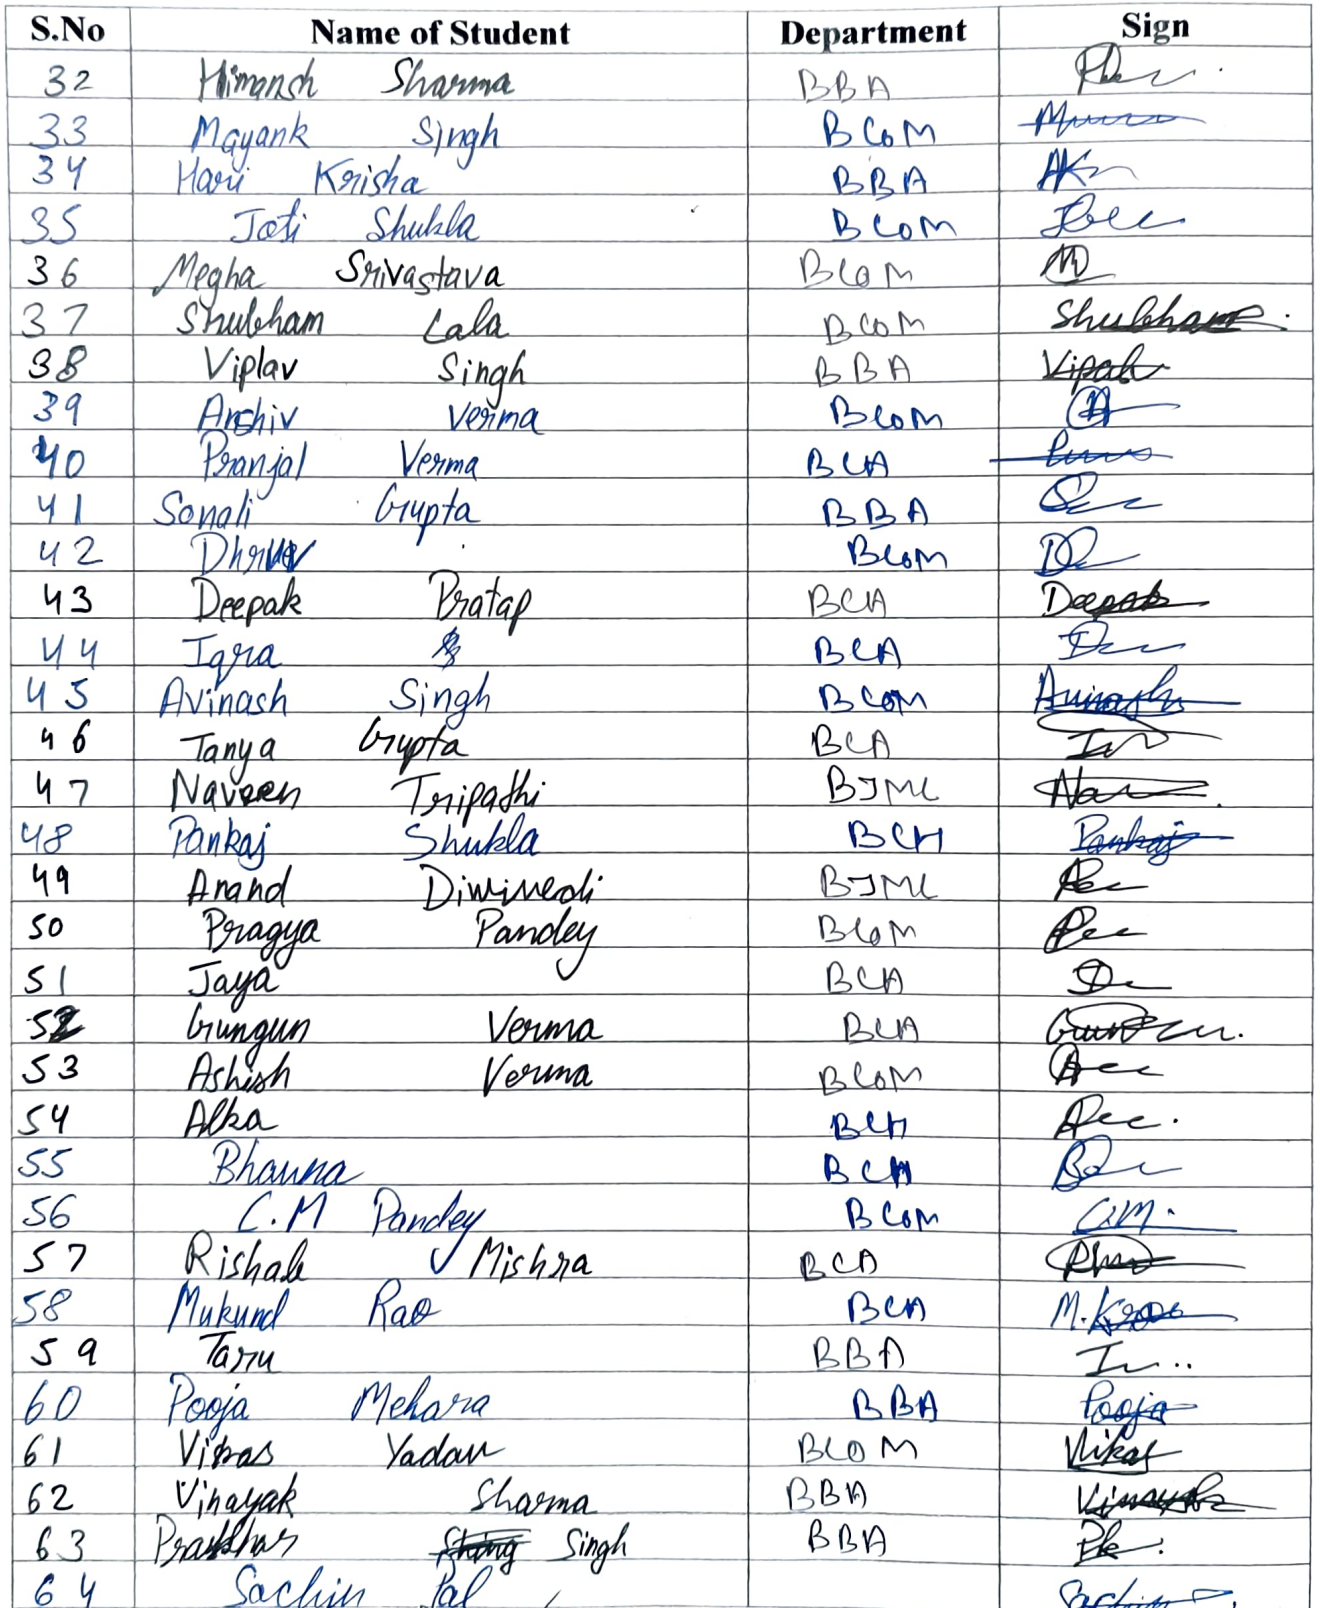 S.No Name of Student Department Sign
32 Himansh Sharma BBA
33 Mayank Singh BCOM
34 Hari Krisha BBA
35 Joti Shukla BCOM
36 Megha Srivastava BCOM
37 Shubham Lala BCOM Shubham
38 Viplav Singh BBA Vipal
39 Anshiv Verma BCOM
40 Pranjal Verma BCA
41 Sonali Gupta BBA
42 Dhruv BCOM
43 Deepak Pratap BCA Deepak
44 Iqra BCA
45 Avinash Singh BCOM Avinash
46 Tanya Gupta BCA
47 Naveen Tripathi BJMC
48 Pankaj Shukla BCA Pankaj
49 Anand Diwivedi BJMC
50 Pragya Pandey BCOM
51 Jaya BCA
52 Gungun Verma BCA
53 Ashish Verma BCOM
54 Alka BCA
55 Bhauna BCA
56 C.M Pandey BCOM C.M.
57 Rishab Mishra BCA
58 Mukund Rao BCA
59 Taru BBA
60 Pooja Mehara BBA Pooja
61 Vikas Yadav BCOM Vikas
62 Vinayak Sharma BBA Vinayak
63 Prakhar Singh BBA
64 Sachin Pal Sachin